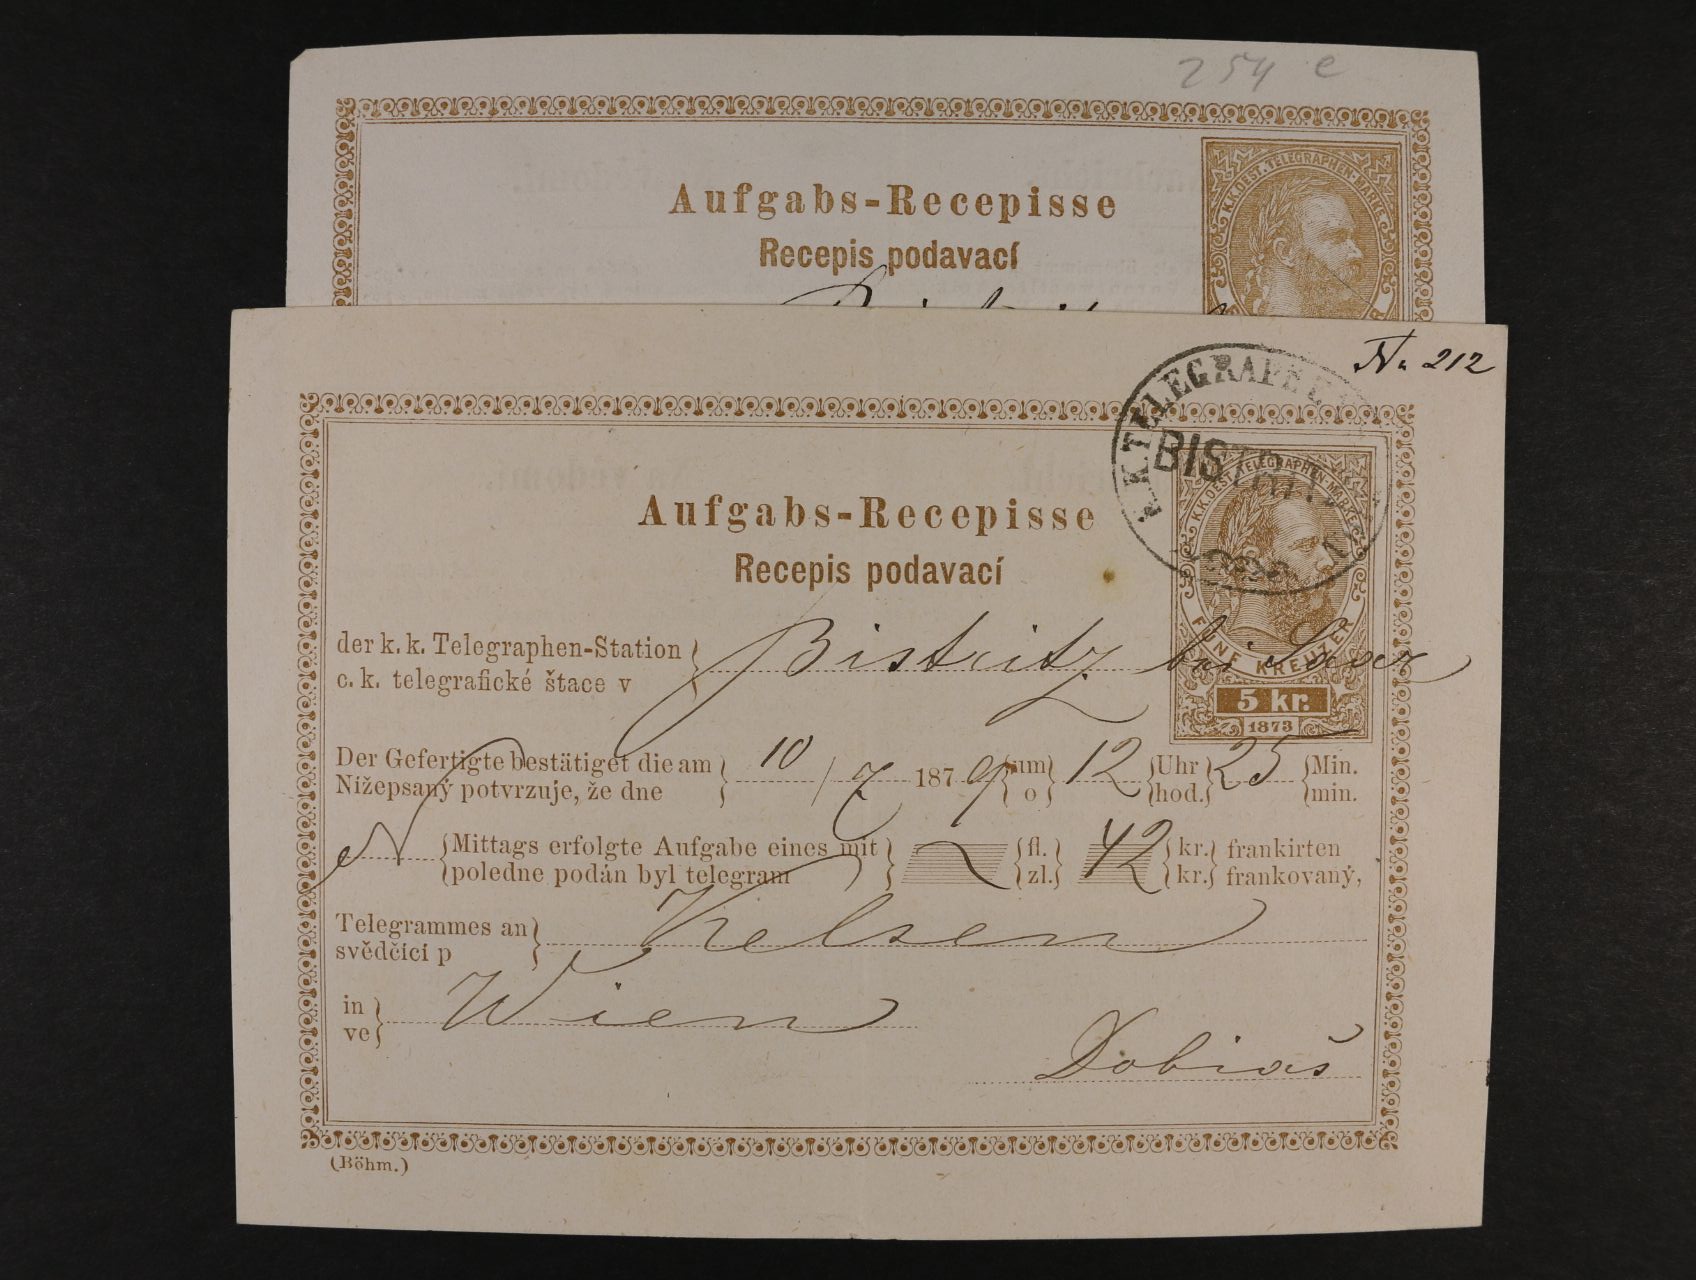 254 e
Aufgabs-Recepisse
Recepis podavací
K.K. OEST. TELEGRAPHEN-MARKE
Nr. 212
K.K. TELEGRAPHEN
BISTRITZ
Aufgabs-Recepisse
Recepis podavací
K.K. OEST. TELEGRAPHEN-MARKE
FÜNF KREUZER
5 kr.
1873
der k. k. Telegraphen-Station } Bistritz bei
c. k. telegrafické štace v
Der Gefertigte bestätiget die am } 10 / 7 1879 { um } 12 { Uhr } 25 { Min.
Nižepsaný potvrzuje, že dne } { o } { hod. } { min.
N { Mittags erfolgte Aufgabe eines mit } — { fl. } 42 { kr. } frankirten
{ poledne podán byl telegram } { zl. } { kr. } frankovaný,
Telegrammes an } Kelsen
svědčící p
in } Wien
ve
Dobiaš
(Böhm.)